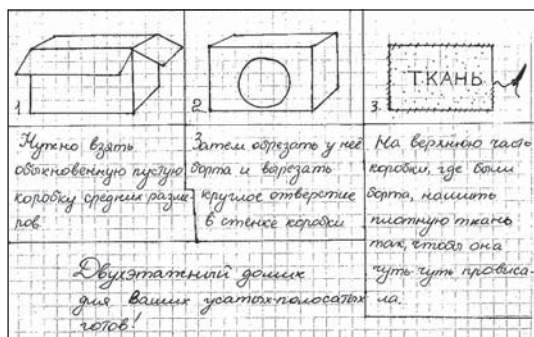 1
Нужно взять
обыкновенную пустую
коробку средних разме-
ров.
2
Затем обрезать у неё
борта и вырезать
круглое отверстие
в стенке коробки
3.
ТКАНЬ
На верхнюю часть
коробки, где были
борта, нашить
плотную ткань
так, чтобы она
чуть-чуть провиса-
ла.
Двухэтажный домик
для Ваших усатых-полосатых
готов!